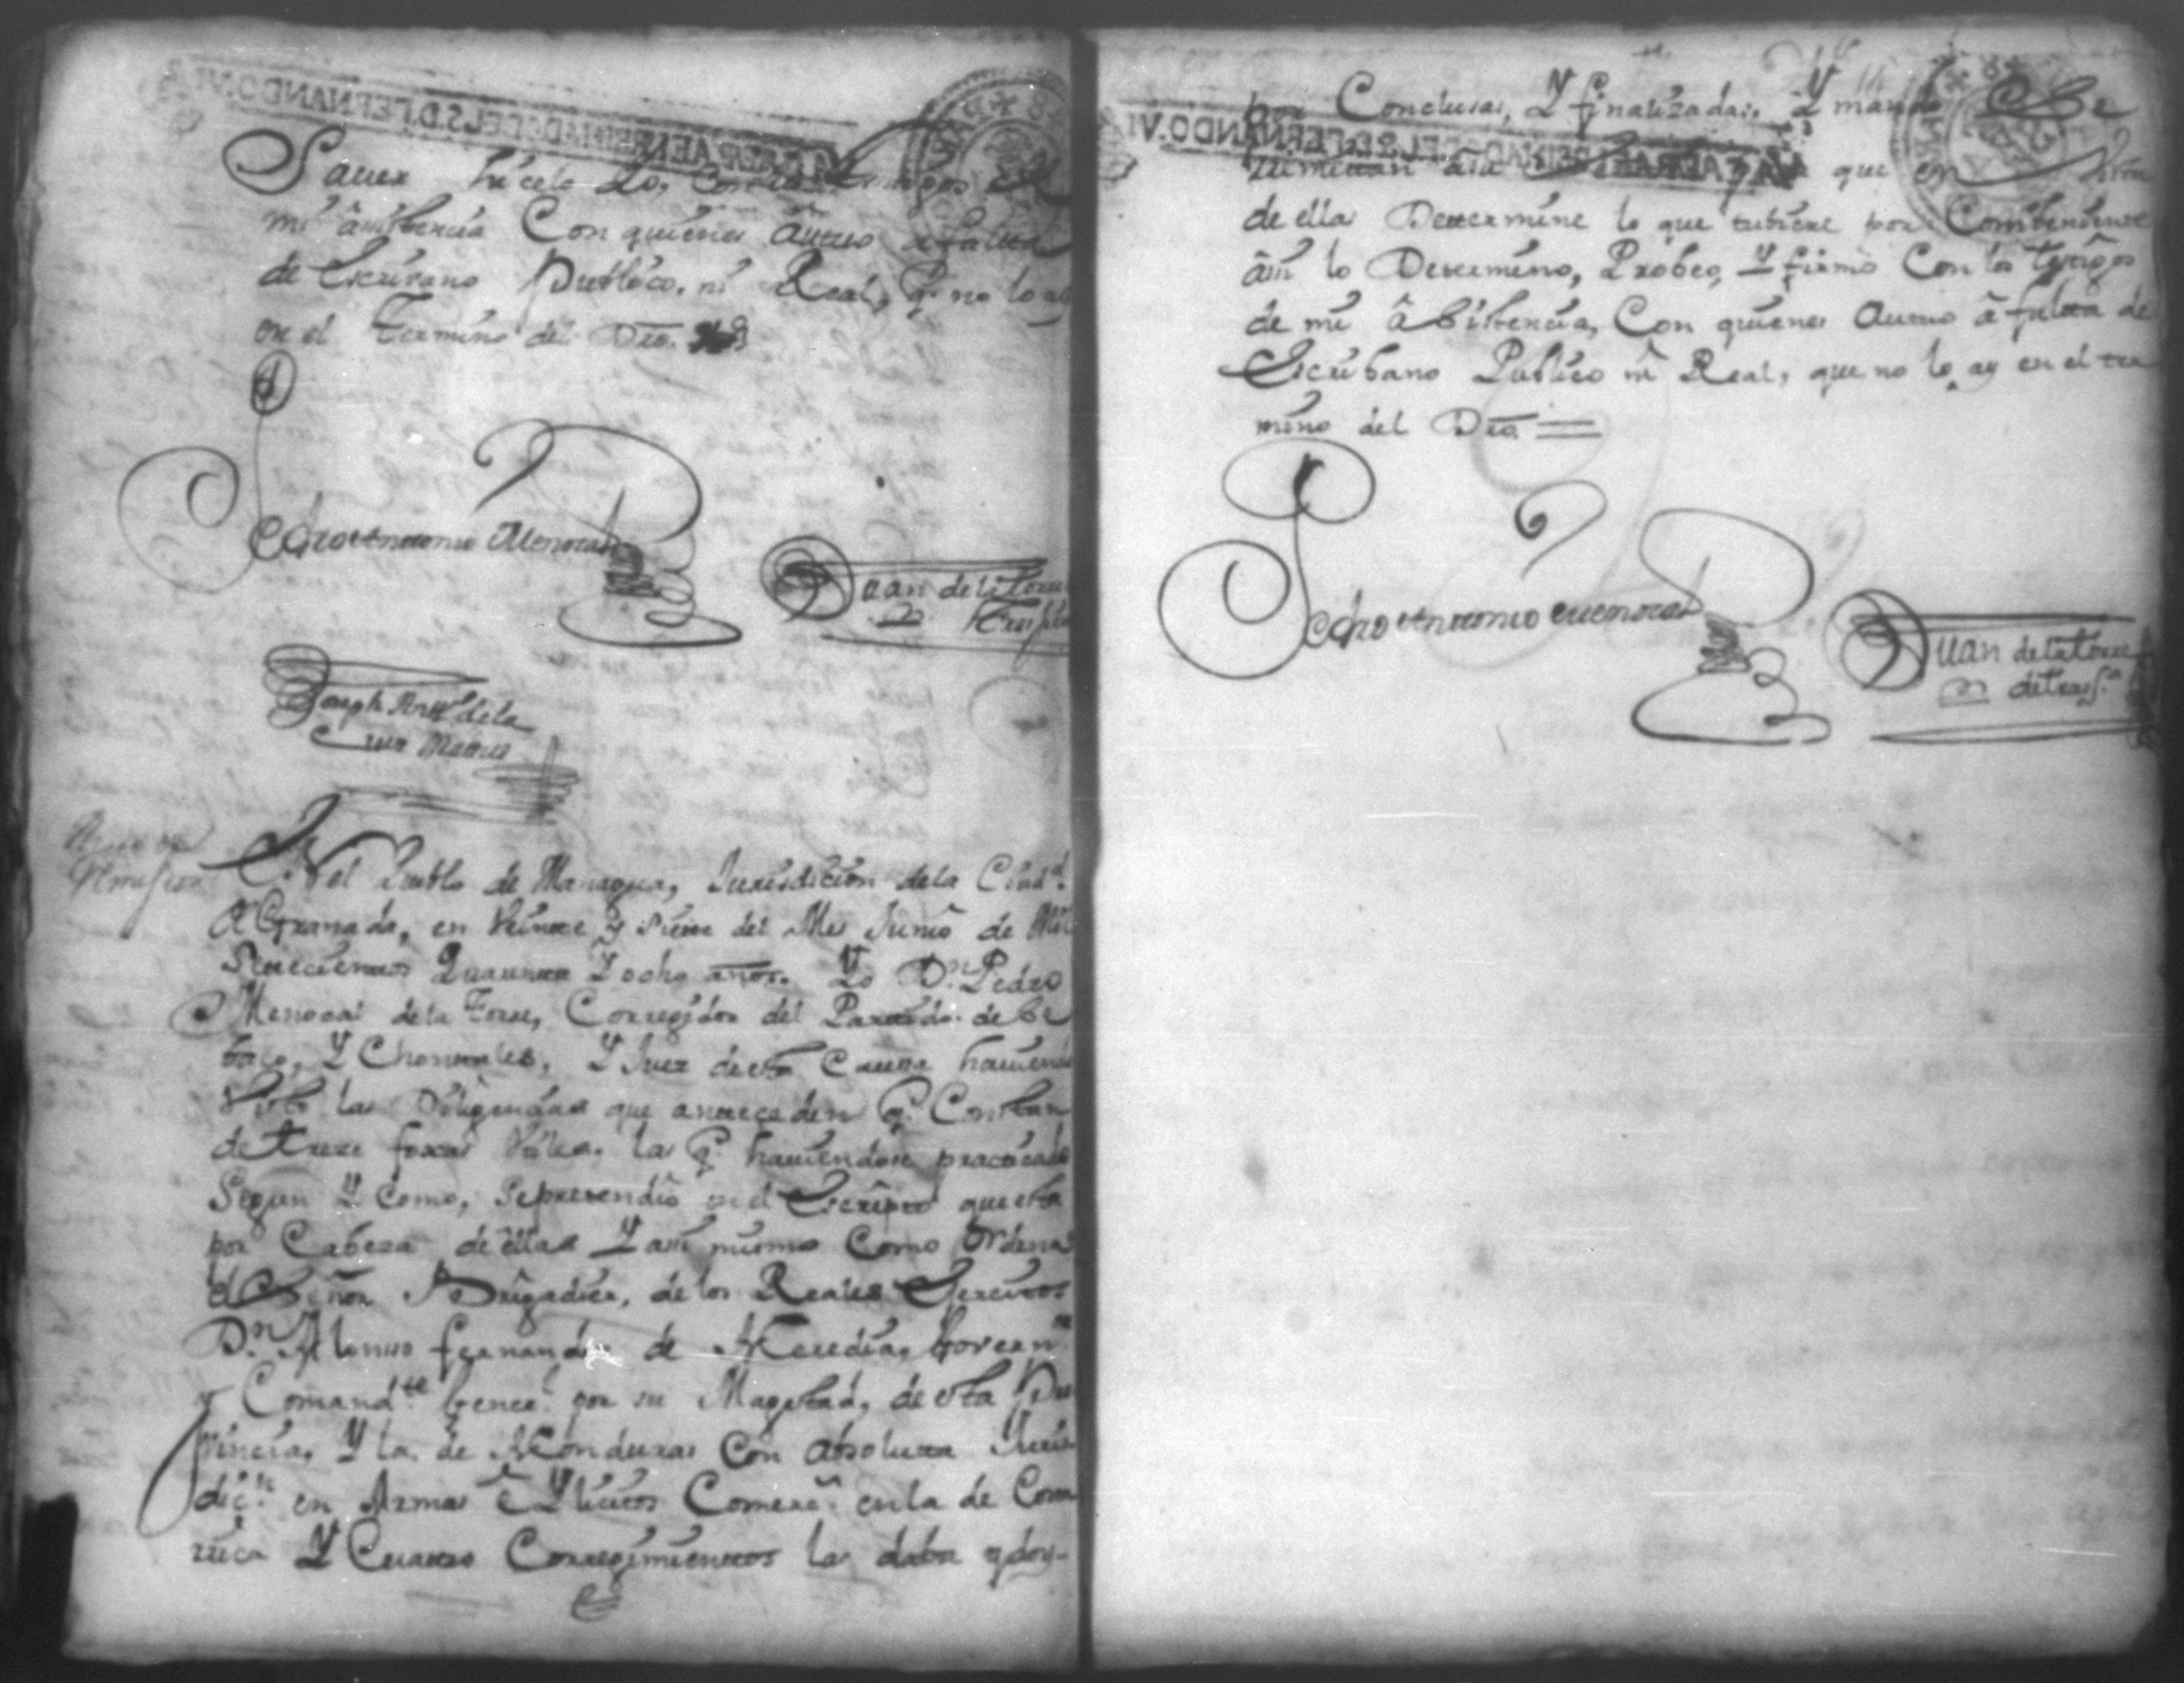 Saver hicelo Yo, con los testigos de
mi âsistencia Con quienes âctuo a falta
de Escrivano Publico, ni Real, q.e no lo ay
en el Termino del Dro.
Pedro Antonio Menocal
Juan de la Torre
Joseph Ant.o de la
Cruz Matus
Auto de
Remision
EN el Pueblo de Managua, Jurisdicion de la Ciud.d
de Granada, en Veinte y siete del Mes Junio de Mil
Setecientos Quarenta Y ocho años. Yo D.n Pedro
Menocal de la Torre, Corregidor del Partido de Se
baco, Y Chontales, Y Juez de esta Causa haviendo
Visto las Diligencias que antteceden q.e Constan
de treze foxas Vtiles. las q.e haviendose practicado
Segun Y Como, se pretendió en el Escripto que esta
por Cabeza de ellas Y assi mismo Como Ordena
el Señor Brigadier, de los Reales Exercitos
D.n Alonso fernandes de Heredia, Govern.or
y Comand.te Gener.l por su Magestad, de esta Pro
vincia, Y la de Honduras Con absoluta Juris
dic.n en Armas ê Ylicitos Comerc.s en la de Costa
rrica Y Cuatro Corregimientos las daba y doy
por Conclusas, Y finalizadas, Y mando Se
rremittan a su que en Vista
de ella Determine lo que tubiere por Combeniente
âssi lo Determino, Probeo, Y firmo Con los testigos
de mi âsistencia, Con quienes Actuo â falta de
Escribano Publico ni Real, que no lo ay en el ter
mino del Dro.
Pedro Antonio Menocal
Juan de la Torre